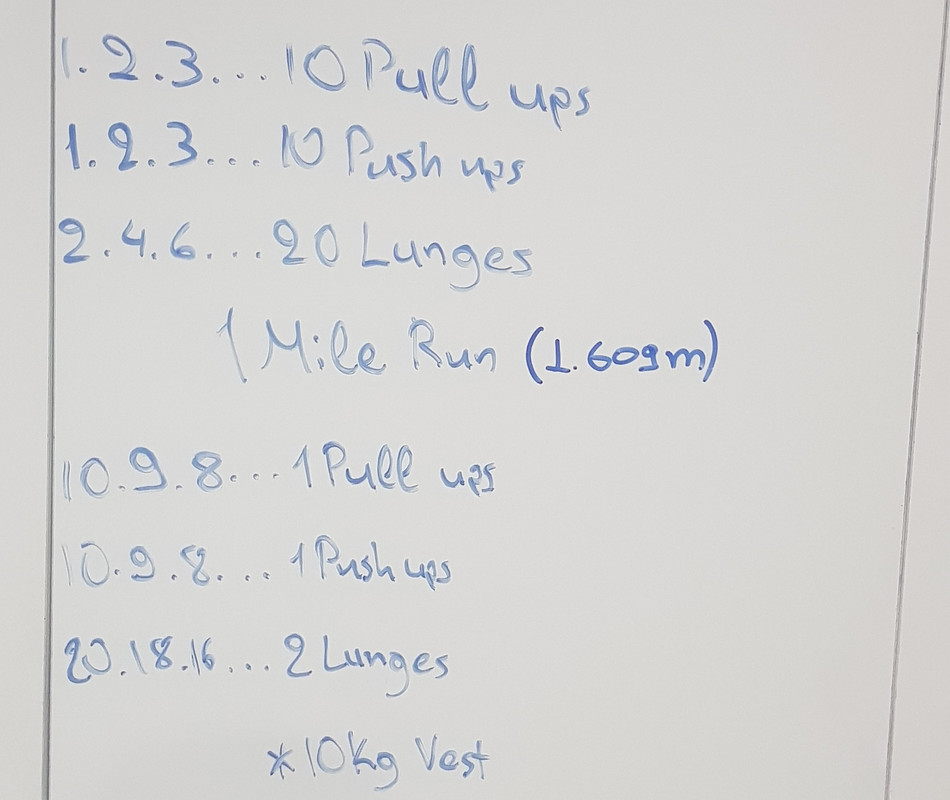 1.2.3... 10 Pull ups
1.2.3... 10 Push ups
2.4.6... 20 Lunges
1 Mile Run (1.609m)
10.9.8... 1 Pull ups
10.9.8... 1 Push ups
20.18.16... 2 Lunges
*10kg Vest